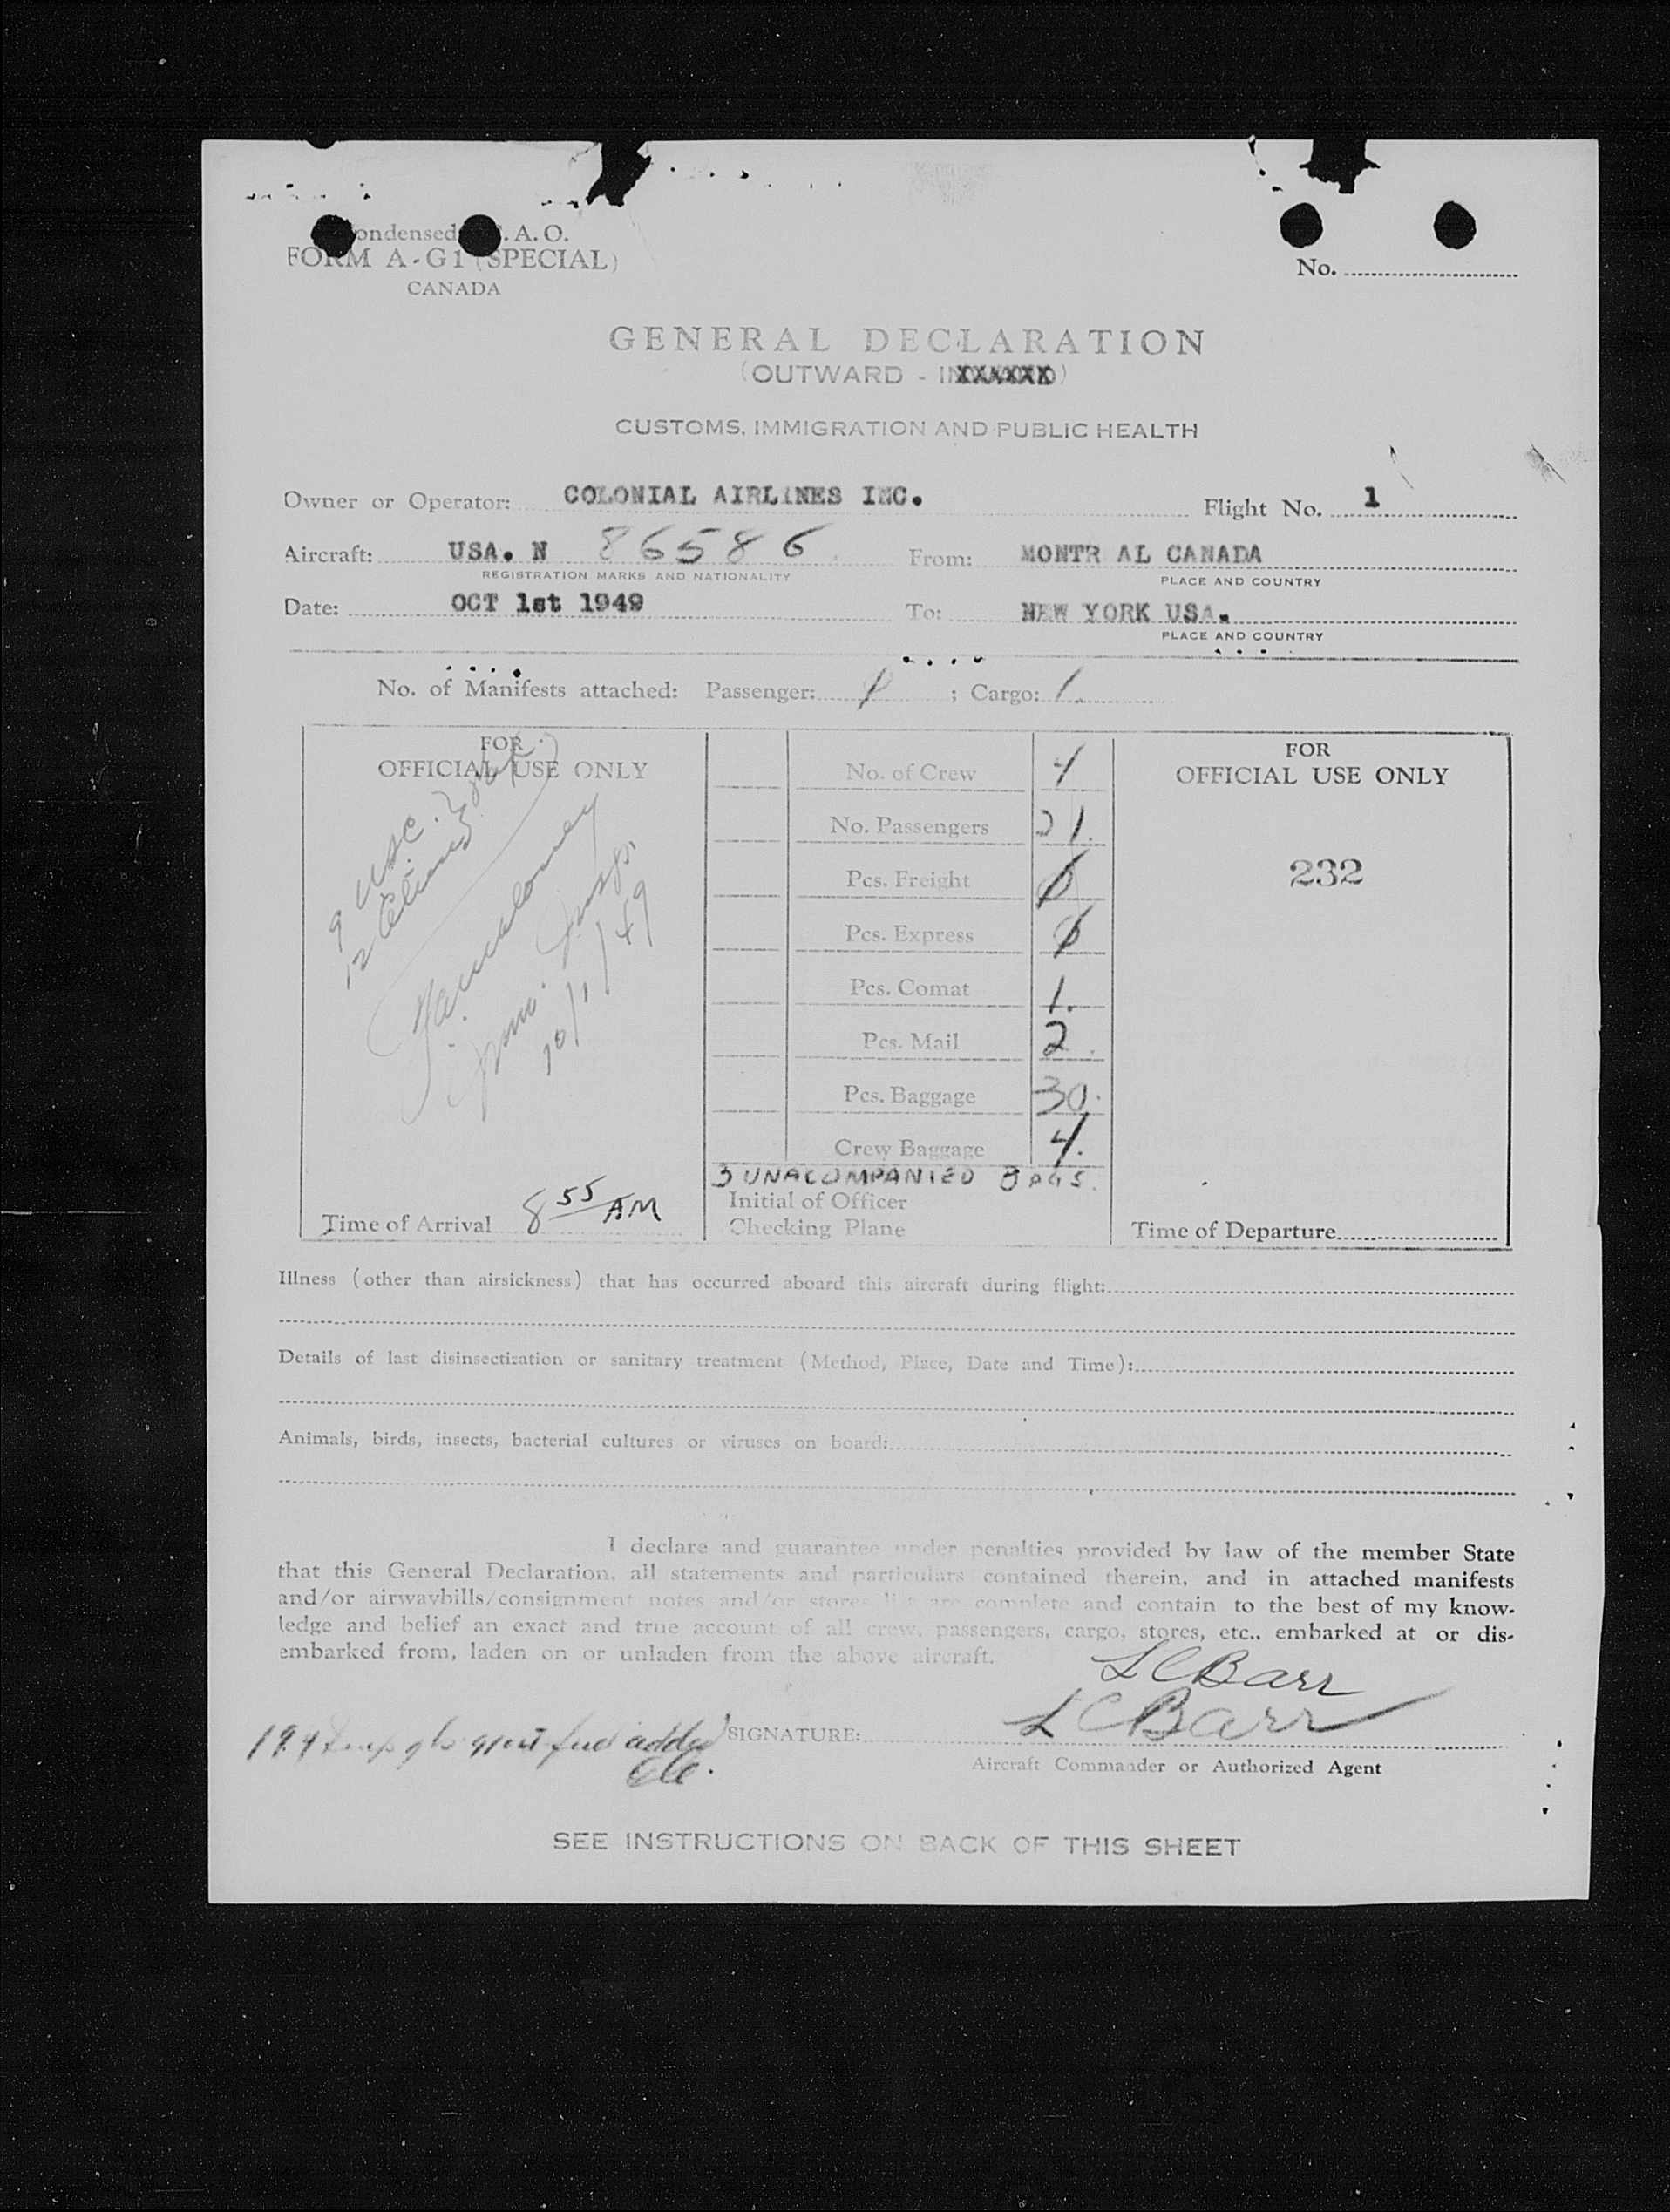 ondensed .A.O.
FORM A-G1 (SPECIAL)
CANADA
No.
GENERAL DECLARATION
(OUTWARD - INXXXXXX)
CUSTOMS, IMMIGRATION AND PUBLIC HEALTH
Owner or Operator: COLONIAL AIRLINES INC. Flight No. 1
Aircraft: USA. N 86586 From: MONTR AL CANADA
REGISTRATION MARKS AND NATIONALITY PLACE AND COUNTRY
Date: OCT 1st 1949 To: NEW YORK USA.
PLACE AND COUNTRY
No. of Manifests attached: Passenger: 1 ; Cargo: 1.
FOR
OFFICIAL USE ONLY
9 USC.
12 Aliens
Imm. Insp.
10/1/49
Time of Arrival 8 55 AM
No. of Crew 4
No. Passengers 21.
Pcs. Freight 0
Pcs. Express 0
Pcs. Comat 1.
Pcs. Mail 2.
Pcs. Baggage 30.
Crew Baggage 4.
3 UNACOMPANIED BAGS.
Initial of Officer
Checking Plane
FOR
OFFICIAL USE ONLY
232
Time of Departure
Illness (other than airsickness) that has occurred aboard this aircraft during flight:
Details of last disinsectization or sanitary treatment (Method, Place, Date and Time):
Animals, birds, insects, bacterial cultures or viruses on board:
I declare and guarantee under penalties provided by law of the member State
that this General Declaration, all statements and particulars contained therein, and in attached manifests
and/or airwaybills/consignment notes and/or stores list are complete and contain to the best of my know-
ledge and belief an exact and true account of all crew, passengers, cargo, stores, etc., embarked at or dis-
embarked from, laden on or unladen from the above aircraft.
L C Barr
194 fuel added
SIGNATURE: L C Barr
Aircraft Commander or Authorized Agent
SEE INSTRUCTIONS ON BACK OF THIS SHEET